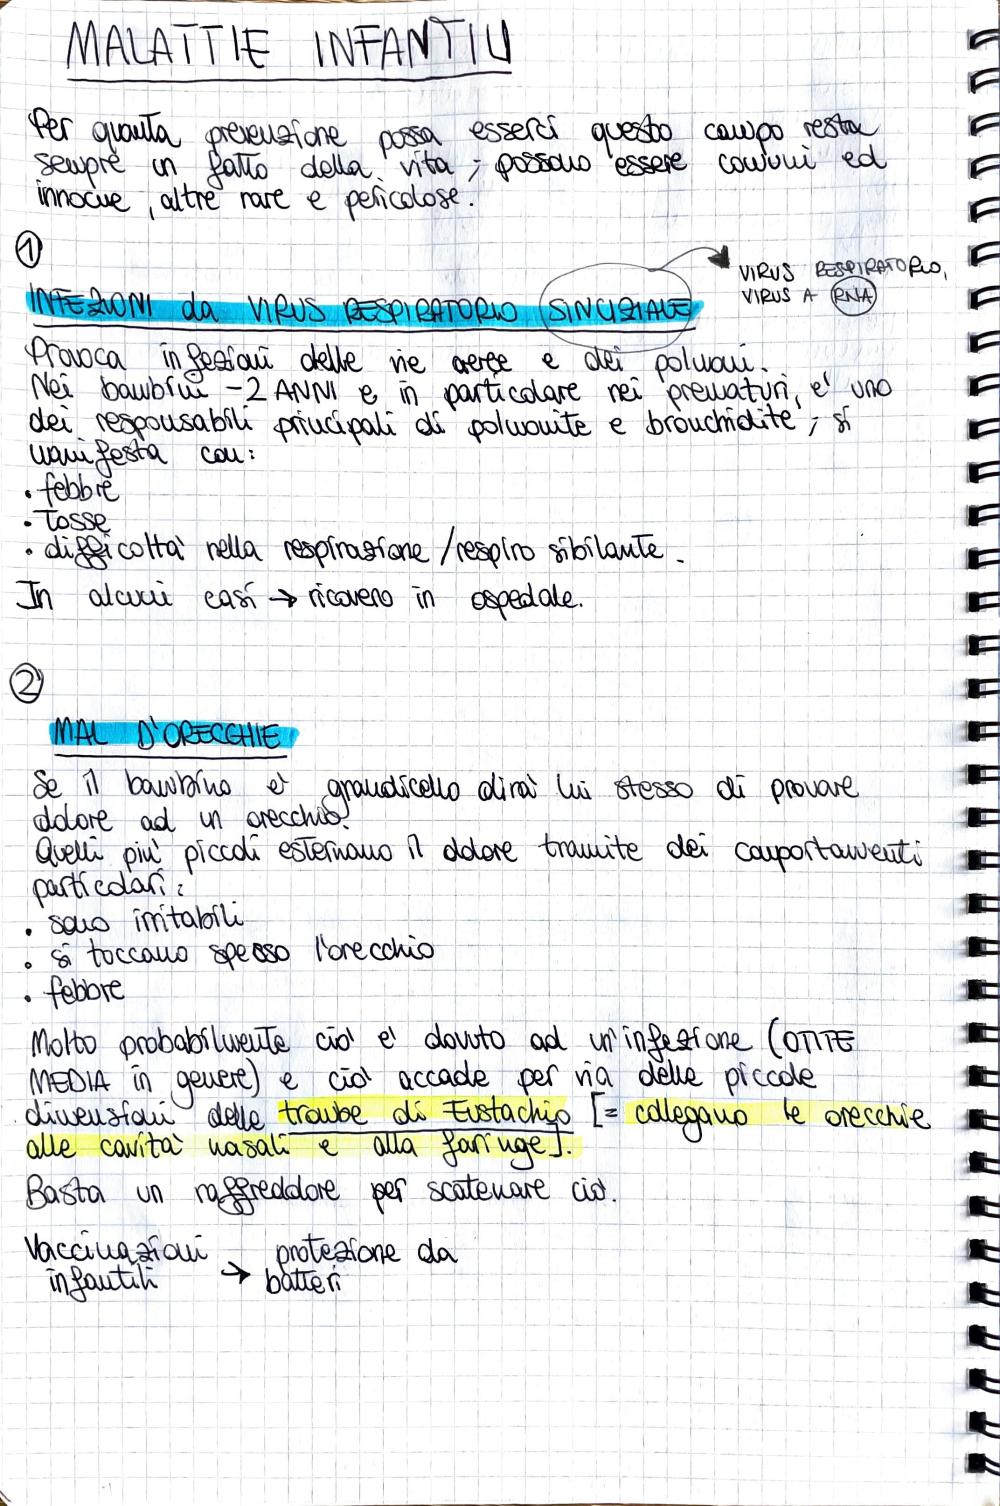 MALATTIE INFANTILI
Per quanta prevenzione possa esserci questo campo resta
sempre un fatto della vita; possono essere comuni ed
innocue, altre rare e pericolose.
①
VIRUS RESPIRATORIO,
VIRUS A RNA
INFEZIONI da VIRUS RESPIRATORIO SINCIZIALE
Provoca infezioni delle vie aeree e dei polmoni.
Nei bambini -2 ANNI e in particolare nei prematuri, e' uno
dei responsabili principali di polmonite e bronchidite; si
manifesta con:
• febbre
• Tosse
• difficoltà nella respirazione / respiro sibilante.
In alcuni casi → ricovero in ospedale.
②
MAL D'ORECCHIE
Se il bambino e' grandicello dirà lui stesso di provare
dolore ad un orecchio.
Quelli più piccoli esternano il dolore tramite dei comportamenti
particolari:
• sono irritabili
• si toccano spesso l'orecchio
• febbre
Molto probabilmente ciò e' dovuto ad un'infezione (OTITE
MEDIA in genere) e ciò accade per via delle piccole
dimensioni delle trombe di Eustachio [= collegano le orecchie
alle cavità nasali e alla faringe].
Basta un raffreddore per scatenare ciò.
Vaccinazioni → protezione da
infantili batteri